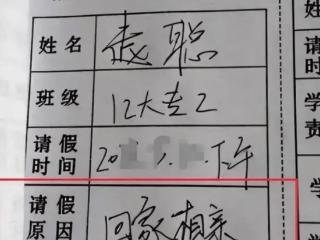 姓名 钱聪
班级 12大专2
请假时间 20 下午
请假原因 回家相亲
姓
请
时
学
责
学